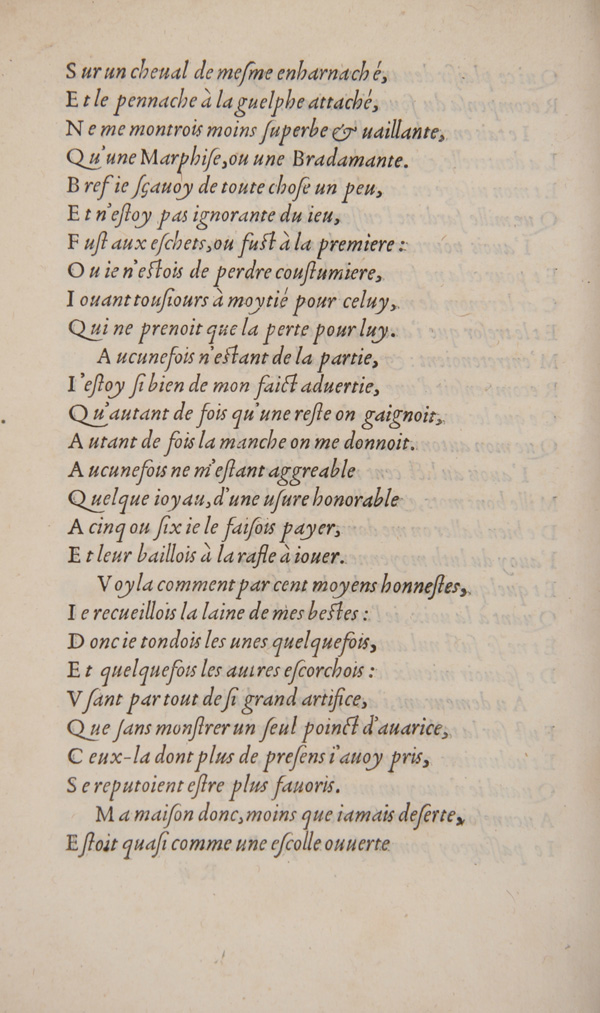 Sur un cheual de meſme enharnaché,
Et le pennache à la guelphe attaché,
Ne me montrois moins ſuperbe & uaillante,
Qu'une Marphiſe, ou une Bradamante.
Bref ie ſçauoy de toute choſe un peu,
Et n'eſtoy pas ignorante du ieu,
Fuſt aux eſchets, ou fuſt à la premiere :
Ou ie n'eſtois de perdre couſtumiere,
Iouant touſiours à moytié pour celuy,
Qui ne prenoit que la perte pour luy.
Aucunefois n'eſtant de la partie,
I'eſtoy ſi bien de mon faict aduertie,
Qu'autant de fois qu'une reſte on gaignoit,
Autant de fois la manche on me donnoit.
Aucunefois ne m'eſtant aggreable
Quelque ioyau, d'une uſure honorable
A cinq ou ſix ie le faiſois payer,
Et leur baillois à la rafle à iouer.
Voyla comment par cent moyens honneſtes,
Ie recueillois la laine de mes beſtes :
Donc ie tondois les unes quelquefois,
Et quelquefois les autres eſcorchois :
Vſant par tout de ſi grand artifice,
Que ſans monſtrer un ſeul poinct d'auarice,
Ceux-la dont plus de preſens i'auoy pris,
Se reputoient eſtre plus fauoris.
Ma maiſon donc, moins que iamais deſerte,
Eſtoit quaſi comme une eſcolle ouuerte